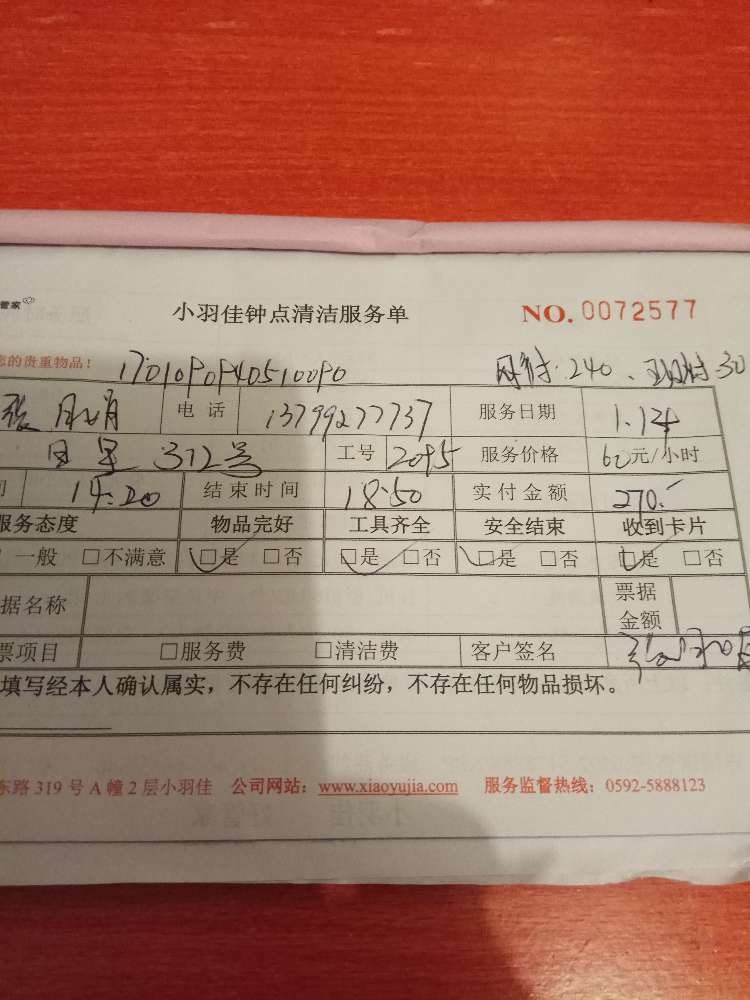 管家 小羽佳钟点清洁服务单 NO. 0072577
您的贵重物品! 网付:240、现付30
电话 13799277737 服务日期
312号 工号 2095 服务价格 60元/小时
14:20 结束时间 18:50 实付金额 270.-
服务态度 物品完好 工具齐全 安全结束 收到卡片
一般 □不满意 □是 □否 □是 □否 □是 □否 □是 □否
据名称 票据金额
票项目 □服务费 □清洁费 客户签名
填写经本人确认属实，不存在任何纠纷，不存在任何物品损坏。
东路 319 号 A 幢 2 层小羽佳 公司网站：www.xiaoyujia.com 服务监督热线：0592-5888123